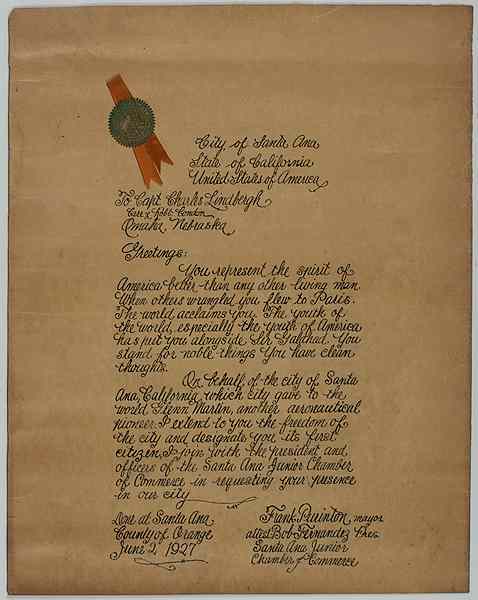 City of Santa Ana
State of California
United States of America
To Capt Charles Lindbergh
Care of Robt Condon
Omaha, Nebraska
Greetings:
You represent the spirit of
America better than any other living man.
When others wrangled you flew to Paris.
The world acclaims you. The youth of
the world, especially the youth of America
has put you alongside Sir Galahad. You
stand for noble things You have clean
thoughts.
On behalf of the city of Santa
Ana, California, which city gave to the
world Glenn Martin, another aeronautical
pioneer, I extend to you the freedom of
the city and designate you its first
citizen, I join with the president and
officers of the Santa Ana Junior Chamber
of Commerce in requesting your presence
in our city
Done at Santa Ana
County of Orange
June 2, 1927
Frank Purinton, mayor
attest Bob Fernandez Pres.
Santa Ana Junior
Chamber of Commerce